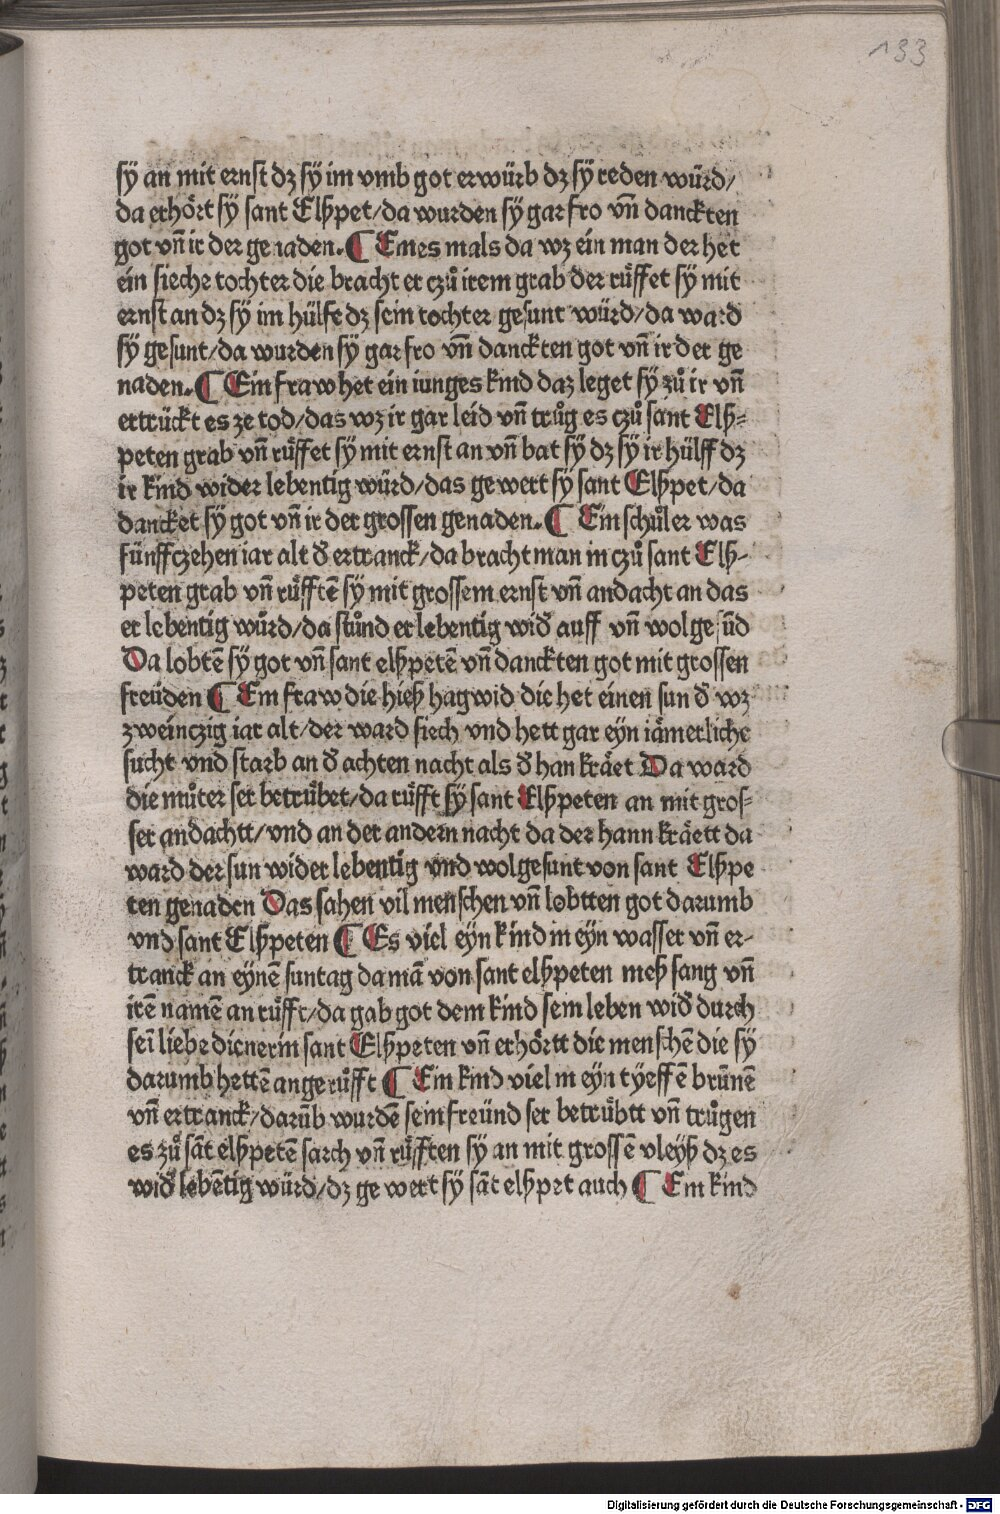 133
sÿ an mit ernst dz sÿ im vmb got erwürb dz sÿ reden würd/
da erhört sÿ sant Elßpet/da wurden sÿ gar fro vñ danckten
got vñ ir der genaden. ¶ Eines mals da wz ein man der het
ein sieche tochter die bracht er czů irem grab der růffet sÿ mit
ernst an dz sÿ im hülfe dz sein tochter gesunt würd/da ward
sÿ gesunt/da wurden sÿ gar fro vñ danckten got vñ ir der ge
naden. ¶ Ein fraw het ein iunges kind daz leget sÿ zů ir vñ
ertrückt es ze tod/das wz ir gar leid vñ trůg es czů sant Elß⸗
peten grab vñ růffet sÿ mit ernst an vñ bat sÿ dz sÿ ir hülff dz
ir kind wider lebentig würd/das gewert sÿ sant Elßpet/da
dancket sÿ got vñ ir der grossen genaden. ¶ Ein schůler was
fünffczehen iar alt d̕ ertranck/da bracht man in czů sant Elß-
peten grab vñ růfftē sÿ mit grossem ernst vñ andacht an das
er lebentig würd/da stůnd er lebentig wid̕ auff vñ wolgesūd
Da lobtē sÿ got vñ sant elßpetē vñ danckten got mit grossen
freüden ¶ Ein fraw die hieß hagwid die het einen sun d̕ wz
zweinczig iar alt/der ward siech vnd hett gar eÿn iämerliche
sucht vnd starb an d̕ achten nacht als d̕ han kräet Da ward
die můter ser betrübet/da růfft sÿ sant Elßpeten an mit gros⸗
ser andachtt/vnd an der andern nacht da der hann kräett da
ward der sun wider lebentig vnd wolgesunt von sant Elßpe
ten genaden Das sahen vil menschen vñ lobtten got darumb
vnd sant Elßpeten ¶ Es viel eÿn kind in eÿn wasser vñ er-
tranck an eÿnē suntag da mā von sant elßpeten meß sang vñ
irē namē an růfft/da gab got dem kind sein leben wid̕ durch
sei liebe dienerin sant Elßpeten vñ erhörtt die menschē die sÿ
darumb hettē angerůfft ¶ Ein kind viel in eÿn tÿeffē brūnē
vñ ertranck/darūb wurdē sein freünd ser betrübtt vñ trůgen
es zů sāt elßpetē sarch vñ růfften sÿ an mit grossē vleÿß dz es
wid̕ lebētig würd/dz gewert sÿ sāt elßpet auch ¶ Ein kind
Digitalisierung gefördert durch die Deutsche Forschungsgemeinschaft - DFG